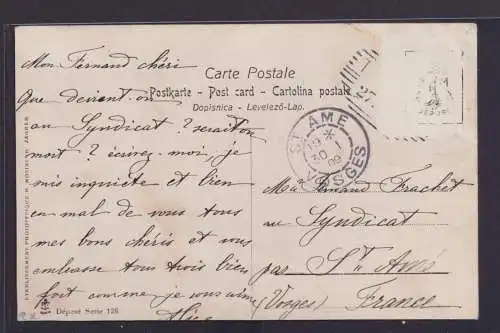 Carte Postale
Postkarte - Post card - Cartolina postale
Dopisnica - Levelező-Lap.
Mon Fernand chéri
Que devient-on
au Syndicat ? serait-on
mort ? écrivez-moi, je
mis inquiète et bien
en mal de vous tous
mes bons chéris et vous
embrasse tous trois bien
fort comme je vous aime
Alice
ST AMÉ
19 *
30 - 1
09
VOSGES
Fernand Frachet
au Syndicat
par St Amé
(Vosges) France
Déposé Serie 128